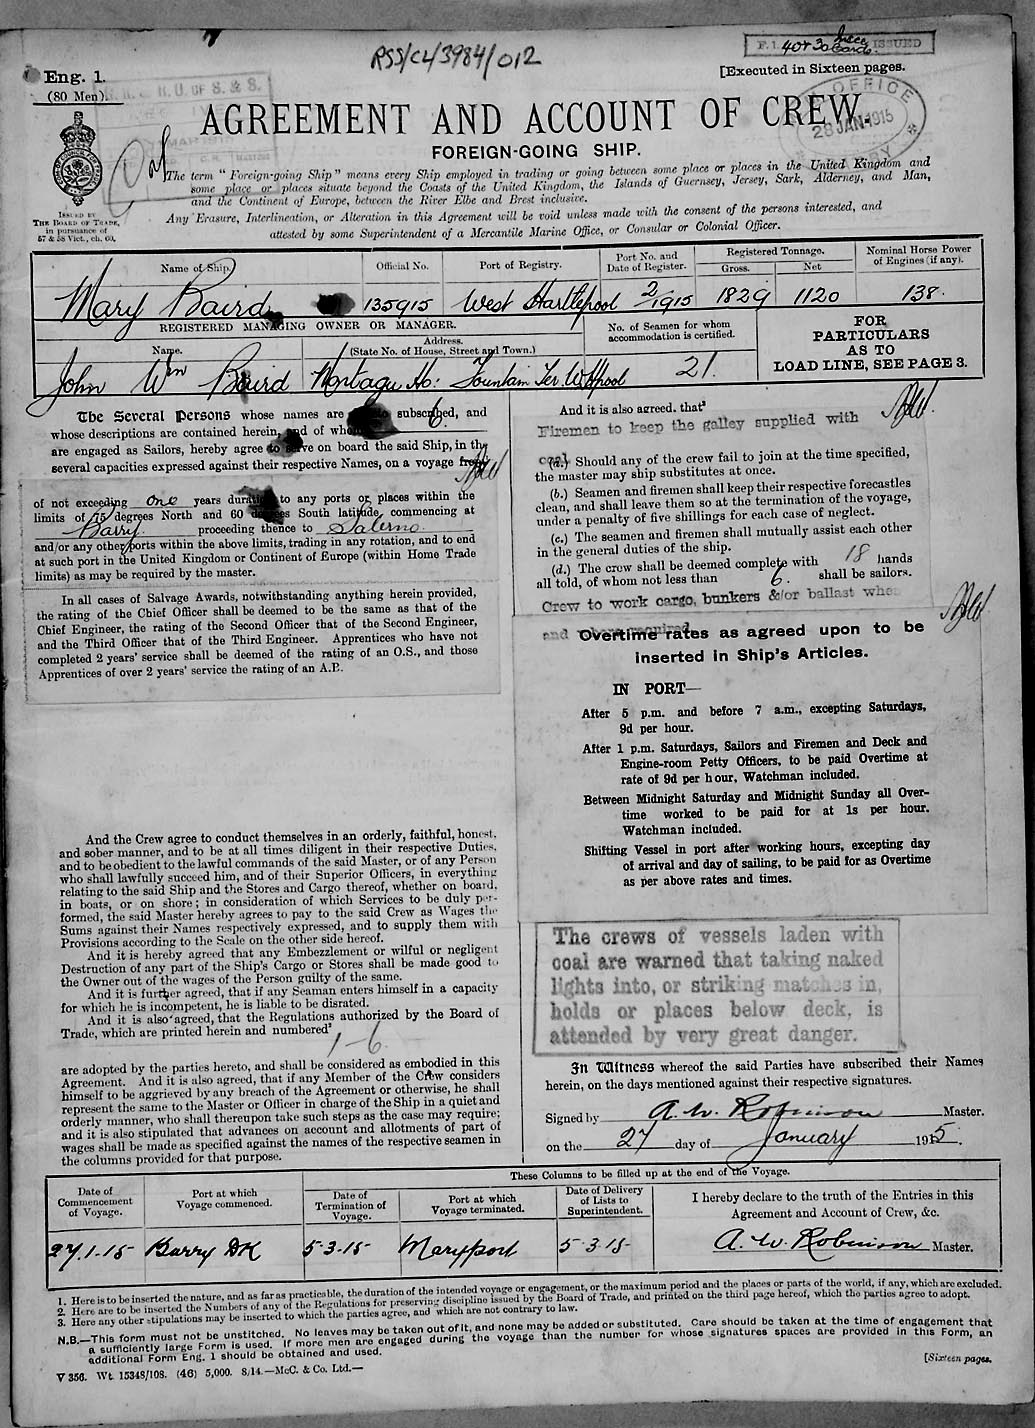 RSS/CL/3984/012
F.1. 40+30 ISSUED
Eng. 1.
(80 Men).
[Executed in Sixteen pages.
R. U. OF S. & S.
OFFICE
28 JAN. 1915
AGREEMENT AND ACCOUNT OF CREW.
FOREIGN-GOING SHIP.
The term "Foreign-going Ship" means every Ship employed in trading or going between some place or places in the United Kingdom and
some place or places situate beyond the Coasts of the United Kingdom, the Islands of Guernsey, Jersey, Sark, Alderney, and Man,
and the Continent of Europe, between the River Elbe and Brest inclusive.
Any Erasure, Interlineation, or Alteration in this Agreement will be void unless made with the consent of the persons interested, and
attested by some Superintendent of a Mercantile Marine Office, or Consular or Colonial Officer.
ISSUED BY
THE BOARD OF TRADE,
in pursuance of
57 & 58 Vict., ch. 60.
Name of Ship.
Official No.
Port of Registry.
Port No. and
Date of Register.
Registered Tonnage.
Gross.
Net
Nominal Horse Power
of Engines (if any).
Mary Baird
135915
West Hartlepool
2/1915
1829
1120
138.
REGISTERED MANAGING OWNER OR MANAGER.
Name.
Address.
(State No. of House, Street and Town.)
No. of Seamen for whom
accommodation is certified.
FOR
PARTICULARS
AS TO
LOAD LINE, SEE PAGE 3.
John Wm Baird
Montague Ho: Fountain Ter. W Hpool
21.
The Several Persons whose names are subscribed, and
whose descriptions are contained herein, and of whom 6.
are engaged as Sailors, hereby agree to serve on board the said Ship, in the
several capacities expressed against their respective Names, on a voyage from
of not exceeding one years duration to any ports or places within the
limits of 75 degrees North and 60 degrees South latitude, commencing at
Barry. proceeding thence to Salerno.
and/or any other ports within the above limits, trading in any rotation, and to end
at such port in the United Kingdom or Continent of Europe (within Home Trade
limits) as may be required by the master.
In all cases of Salvage Awards, notwithstanding anything herein provided,
the rating of the Chief Officer shall be deemed to be the same as that of the
Chief Engineer, the rating of the Second Officer that of the Second Engineer,
and the Third Officer that of the Third Engineer. Apprentices who have not
completed 2 years' service shall be deemed of the rating of an O.S., and those
Apprentices of over 2 years' service the rating of an A.B.
And the Crew agree to conduct themselves in an orderly, faithful, honest,
and sober manner, and to be at all times diligent in their respective Duties,
and to be obedient to the lawful commands of the said Master, or of any Person
who shall lawfully succeed him, and of their Superior Officers, in everything
relating to the said Ship and the Stores and Cargo thereof, whether on board,
in boats, or on shore; in consideration of which Services to be duly per-
formed, the said Master hereby agrees to pay to the said Crew as Wages the
Sums against their Names respectively expressed, and to supply them with
Provisions according to the Scale on the other side hereof.
And it is hereby agreed that any Embezzlement or wilful or negligent
Destruction of any part of the Ship's Cargo or Stores shall be made good to
the Owner out of the wages of the Person guilty of the same.
And it is further agreed, that if any Seaman enters himself in a capacity
for which he is incompetent, he is liable to be disrated.
And it is also agreed, that the Regulations authorized by the Board of
Trade, which are printed herein and numbered²
1-6.
are adopted by the parties hereto, and shall be considered as embodied in this
Agreement. And it is also agreed, that if any Member of the Crew considers
himself to be aggrieved by any breach of the Agreement or otherwise, he shall
represent the same to the Master or Officer in charge of the Ship in a quiet and
orderly manner, who shall thereupon take such steps as the case may require;
and it is also stipulated that advances on account and allotments of part of
wages shall be made as specified against the names of the respective seamen in
the columns provided for that purpose.
And it is also agreed. that³
Firemen to keep the galley supplied with
coal
(a.) Should any of the crew fail to join at the time specified,
the master may ship substitutes at once.
(b.) Seamen and firemen shall keep their respective forecastles
clean, and shall leave them so at the termination of the voyage,
under a penalty of five shillings for each case of neglect.
(c.) The seamen and firemen shall mutually assist each other
in the general duties of the ship.
(d.) The crew shall be deemed complete with 18 hands
all told, of whom not less than 6. shall be sailors.
Crew to work cargo, bunkers &/or ballast when
and where required
Overtime rates as agreed upon to be
inserted in Ship's Articles.
IN PORT—
After 5 p.m. and before 7 a.m., excepting Saturdays,
9d per hour.
After 1 p.m. Saturdays, Sailors and Firemen and Deck and
Engine-room Petty Officers, to be paid Overtime at
rate of 9d per hour, Watchman included.
Between Midnight Saturday and Midnight Sunday all Over-
time worked to be paid for at 1s per hour.
Watchman included.
Shifting Vessel in port after working hours, excepting day
of arrival and day of sailing, to be paid for as Overtime
as per above rates and times.
The crews of vessels laden with
coal are warned that taking naked
lights into, or striking matches in,
holds or places below deck, is
attended by very great danger.
In Witness whereof the said Parties have subscribed their Names
herein, on the days mentioned against their respective signatures.
Signed by A. W. Robinson Master.
on the 27 day of January 1915.
These Columns to be filled up at the end of the Voyage.
Date of
Commencement
of Voyage.
Port at which
Voyage commenced.
Date of
Termination of
Voyage.
Port at which
Voyage terminated.
Date of Delivery
of Lists to
Superintendent.
I hereby declare to the truth of the Entries in this
Agreement and Account of Crew, &c.
27.1.15
Barry DK
5-3-15
Maryport
5-3-15
A. W. Robinson Master.
1. Here is to be inserted the nature, and as far as practicable, the duration of the intended voyage or engagement, or the maximum period and the places or parts of the world, if any, which are excluded.
2. Here are to be inserted the Numbers of any of the Regulations for preserving discipline issued by the Board of Trade, and printed on the third page hereof, which the parties agree to adopt.
3. Here any other stipulations may be inserted to which the parties agree, and which are not contrary to law.
N.B.—This form must not be unstitched. No leaves may be taken out of it, and none may be added or substituted. Care should be taken at the time of engagement that
a sufficiently large Form is used. If more men are engaged during the voyage than the number for whose signatures spaces are provided in this Form, an
additional Form Eng. 1 should be obtained and used.
V 356. Wt. 15348/108. (46) 5,000. 8/14.—McC. & Co. Ltd.—
[Sixteen pages.